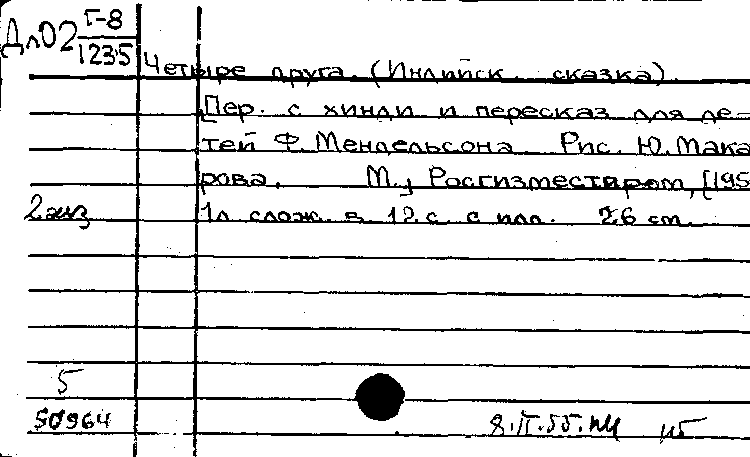 Дл02 Г-8
1235
Четыре друга. (Индийск. сказка).
Пер. с хинди и пересказ для де-
тей Ф. Мендельсона. Рис. Ю. Мака
рова. М., Росгизместпром, [195
2 экз 1л. слож. в 12 с. с илл. 26 см.
5
50964 8.IV.55.